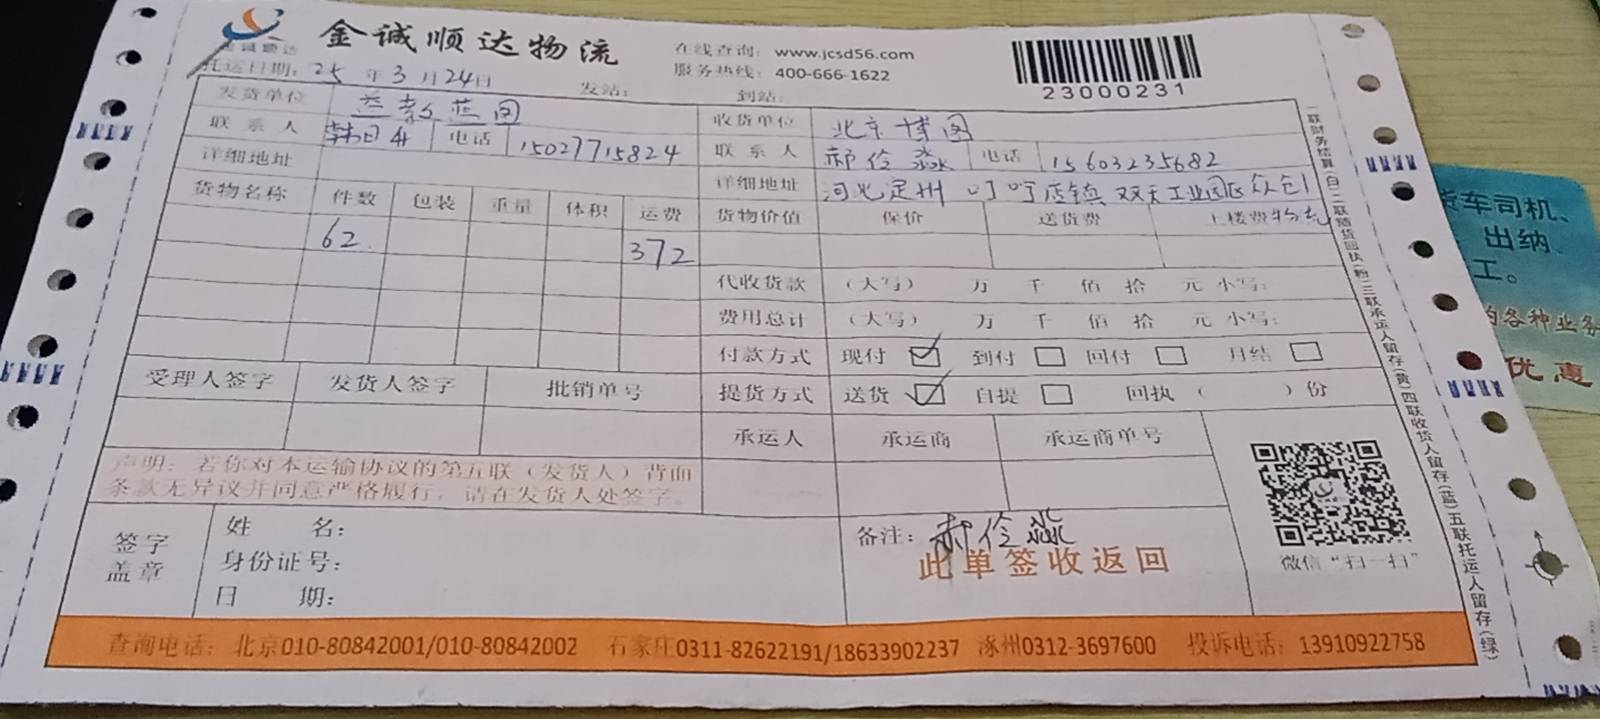 金诚顺达
金诚顺达物流
在线查询: www.jcsd56.com
服务热线: 400-666-1622
23000231
托运日期: 25 年 3 月 24 日 发站: 到站:
发货单位 收货单位 北京博图
联系人 电话 15027715824 联系人 郝伶淼 电话 15603235682
详细地址 详细地址 河北定州 叮咛店镇 双天工业园区众创物流
货物名称 件数 包装 重量 体积 运费 货物价值 保价 送货费 上楼费
62 372
代收货款 (大写) 万 千 佰 拾 元 小写:
费用总计 (大写) 万 千 佰 拾 元 小写:
付款方式 现付 ☑ 到付 □ 回付 □ 月结 □
受理人签字 发货人签字 批销单号 提货方式 送货 ☑ 自提 □ 回执 ( ) 份
承运人 承运商 承运商单号
声明: 若你对本运输协议的第五联(发货人)背面
条款无异议并同意严格履行, 请在发货人处签字。
签字
盖章
姓 名:
身份证号:
日 期:
备注: 郝伶淼
此单签收返回
微信“扫一扫”
查询电话: 北京010-80842001/010-80842002 石家庄0311-82622191/18633902237 涿州0312-3697600 投诉电话: 13910922758
一联财务结算(白)二联随货回执(粉)三联承运人留存(黄)四联收货人留存(蓝)五联托运人留存(绿)
货车司机、
出纳
工。
的各种业务
优惠